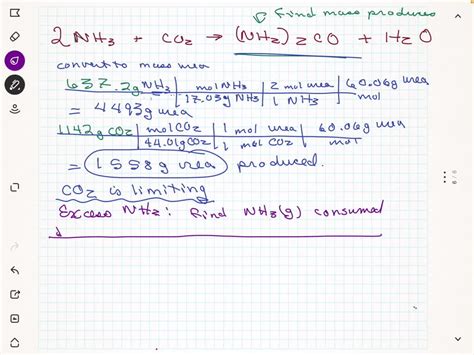 Find mass produced
2NH3 + CO2 → (NH2)2CO + H2O
convert to mass urea
637.2g NH3 | mol NH3 | 2 mol urea | 60.06g urea
17.03g NH3 | 1 NH3 | mol
= 4493g urea
1142g CO2 | mol CO2 | 1 mol urea | 60.06g urea
44.01g CO2 | 1 mol CO2 | mol
= 1558g urea produced.
CO2 is limiting
Excess NH3: Find NH3(g) consumed